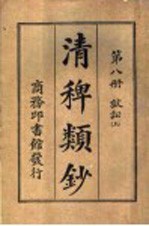 第八冊 獄訟上
清稗類鈔
商務印書館發行